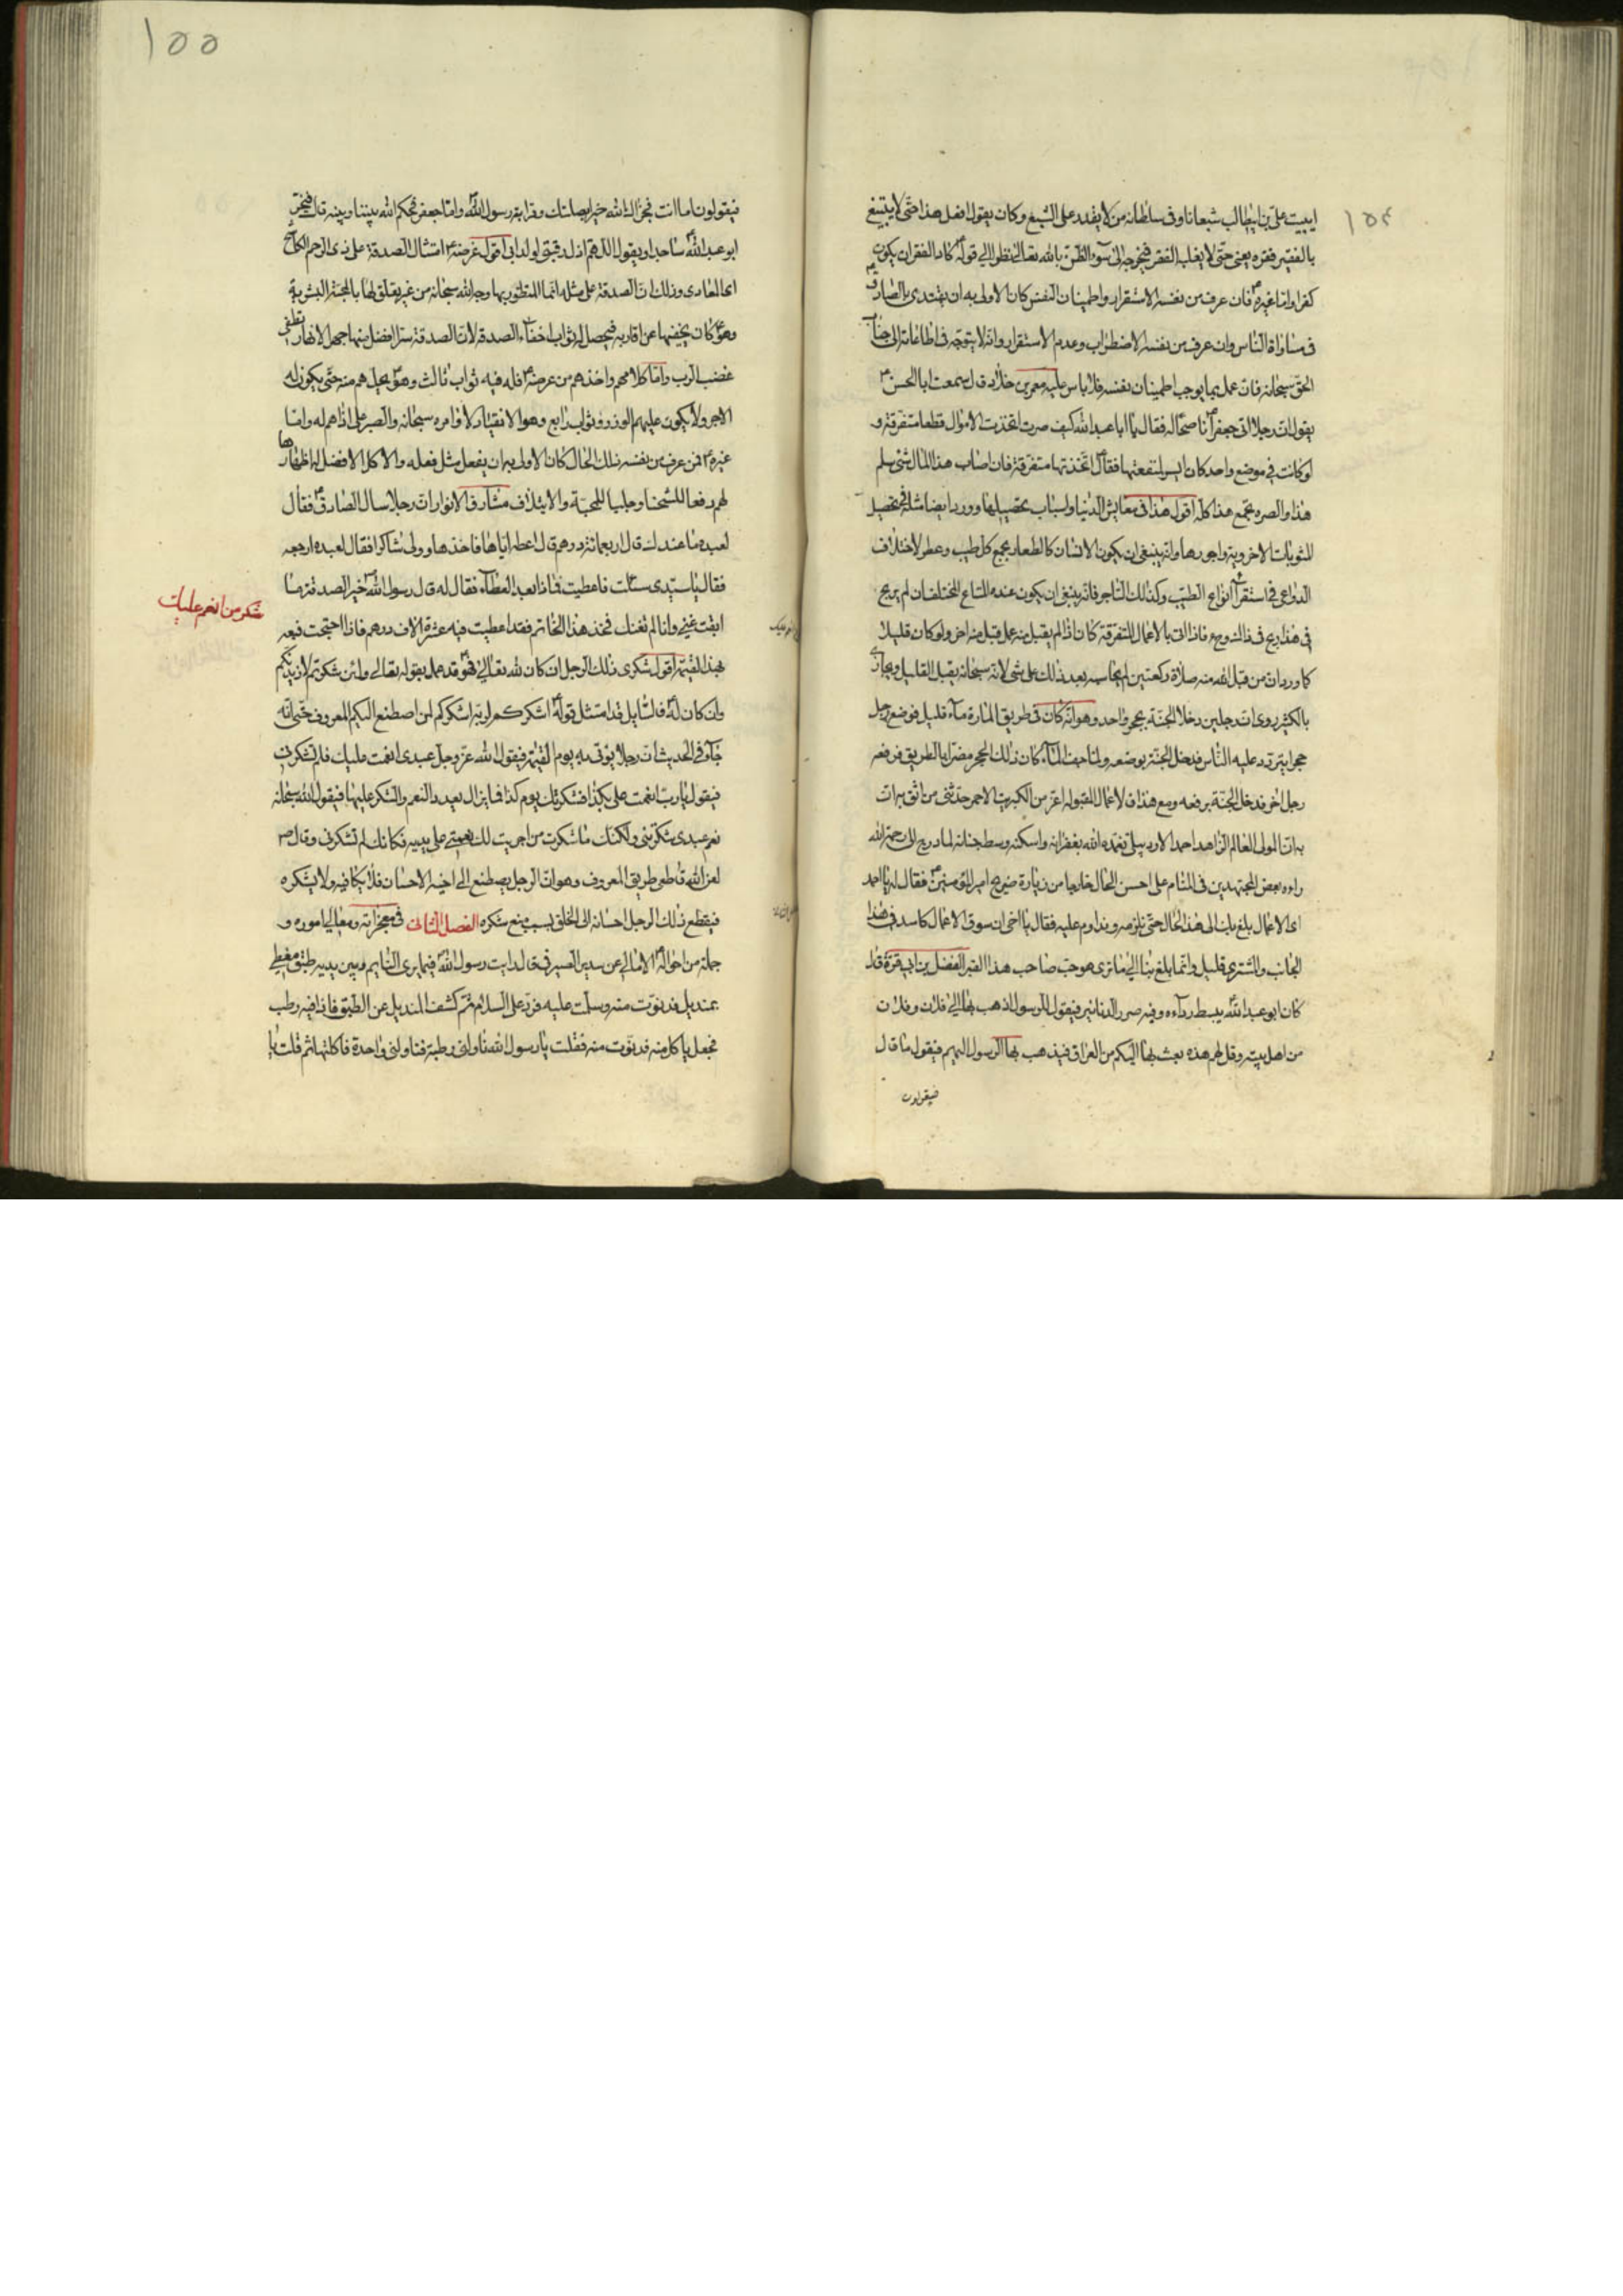 ١٥٤
ايبيت علي بن ابيطالب شبعانا وفي سلطانه من لا يقدر على الشبع وكان يفعل هذا حتى لا يتبيغ
بالفقير فقره يعني حتى لا يغلب الفقر فيخرجه الى سوء الظن بالله تعالى نظرا الى قوله كاد الفقر ان يكون
كفرا واما غيره فان عرف من نفسه الاستقرار واطمينان النفس كان الاولى به ان يقتدى بالصادق
في مساواة الناس وان عرف من نفسه الاضطراب وعدم الاستقرار وانه لا يتوجه في طاعاته الى جناب
الحق سبحانه فان عمل بما يوجب اطمينان نفسه فلا باس عليه معمر بن خلاد قال سمعت ابا الحسن
يقول ان رجلا اتى جعفرا فقال يا ابا عبد الله كيف صرت اتخذت الاموال قطعا متفرقة و
لو كانت في موضع واحد كان ايسر لمنفعتها فقال اتخذتها متفرقة فان اصاب هذا المال شئ سلم
هذا والصره تجمع هذا كله اقول هذا في معايش الدنيا واسباب تحصيلها وورد ايضا مثله في تحصيل
المثوبات الاخروية واجورها وانه ينبغي ان يكون الانسان كالعطار يجمع كل طيب وعطر لاختلاف
الدواعي في استقراء انواع الطيب وكذلك التاجر فانه ينبغي ان يكون عنده المتاع المختلف ان لم يربح
في هذا ربح في ذلك فاذا اتى بالاعمال المتفرقة كان اذا لم يقبل منه عمل قبل منه اخر ولو كان قليلا
كما ورد ان من قبل الله منه صلاة ركعتين لم يحاسبه بعد ذلك على شئ لانه سبحانه يقبل القليل ويجازي
بالكثير روي ان رجلين دخلا الجنة بحجر واحد وهو انه كان في طريق المارة ماء قليل فوضع رجل
حجرا يتردد عليه الناس فدخل الجنة بوضعه ولما جف الماء كان ذلك الحجر مضرا بالطريق فرفعه
رجل اخر فدخل الجنة برفعه ومع هذا فالاعمال المقبوله اعز من الكبريت الاحمر حدثني من اثق به ان
به ان المولى العالم الزاهد احمد الاردبيلي تغمده الله بغفرانه واسكنه وسط جنانه لما درج الى رحمة الله
راه بعض المجتهدين في المنام على احسن الحال خارجا من زيارة ضريح امير المؤمنين فقال له يا احمد
اى الاعمال بلغ بك الى هذا الحال حتى نلزمه ونداوم عليه فقال يا اخي ان سوق الاعمال كاسد في هذا
الجانب والمشتري قليل وانما بلغ بنا الى ما ترى هو حب صاحب هذا القبر الفضل بن ابي قرة قال
كان ابو عبد الله يبسط رداءه وفيه صرر الدنانير فيقول للرسول اذهب بها الى فلان وفلان
من اهل بيته وقل لهم هذه بعث بها اليكم من العراق فيذهب بها الرسول اليهم فيقول ما قال
فيقولون
١٥٥
فيقولون اما انت فجزاك الله خيرا بصلتك وقرابة رسول الله واما جعفر فحكم الله بيننا وبينه قال فيخر
ابو عبد الله ساجدا ويقول اللهم اذل رقبتي لولد ابي اقول غرضه امتثال الصدقة على ذي الرحم الكاشح
اى المعادى وذلك ان الصدقة على مثله انما المنظور بها وجه الله سبحانه من غير تعلق لها بالمحبة البشرية
وهو كان يخفيها عن اقاربه فيحصل له ثواب اخفاء الصدقة لان الصدقة سترا افضل منها جهرا لانها تطفى
غضب الرب واما كلامهم واخذهم من عرضه فله فيه ثواب ثالث وهو يحلهم منه حتى يكون له
الاجر ولا يكون عليهم الوزر وثواب رابع وهو الانقياد لاوامره سبحانه والصبر على اذاهم له واما
غيره فمن عرف من نفسه ذلك الحال كان الاولى به ان يفعل مثل فعله والا كان الافضل له اظهارها
لهم رفعا للشحنا وجلبا للمحبة والايتلاف مشارق الانوار ان رجلا سال الصادق فقال
لعبده ما عندك قال اربعمائة درهم قال اعطه اياها فاخذها وولى شاكرا فقال لعبده ارجعه
فقال يا سيدى سئلت فاعطيت فماذا بعد العطاء فقال له قال رسول الله خير الصدقة ما
ابقت غنى وانا لم نغنك فخذ هذا الخاتم فقد اعطيت فيه عشرة الاف درهم فاذا احتجت فبعه
بهذا القيمة اقول شكرى ذلك الرجل ان كان لله تعالى فهو قد عمل بقوله تعالى ولئن شكرتم لازيدنكم
وان كان له فالسايل قد امتثل قوله اشكركم لربه اشكركم لمن اصطنع اليكم المعروف حتى انه
جاء في الحديث ان رجلا يؤتى به يوم القيمة فيقول الله عز وجل عبدى انعمت عليك فلم تشكرني
فيقول يا رب انعمت علي بكذا فشكرتك يوم كذا فما يزال يعدد النعم والشكر عليها فيقول الله سبحانه
نعم عبدى شكرتني ولكنك ما شكرت من اجريت لك نعمتي على يديه فكانك لم تشكرني وقال
لعن الله قاطعي طريق المعروف وهو ان الرجل يصطنع الى اخيه الاحسان فلا يكافيه ولا يشكره
فيقطع ذلك الرجل احسانه الى الخلق بسبب منع شكره الفصل الثاني في معجزاته ومعالي اموره و
جملة من احواله الامالي عن سدير الصيرفي قال رايت رسول الله فيما يرى النايم وبين يديه طبق مغطى
بمنديل فدنوت منه وسلمت عليه فرد علي السلام ثم كشف المنديل عن الطبق فاذا فيه رطب
فجعل ياكل منه فدنوت منه فقلت يا رسول الله ناولني رطبة فناولني واحدة فاكلتها ثم قلت يا
شكر من انعم عليك